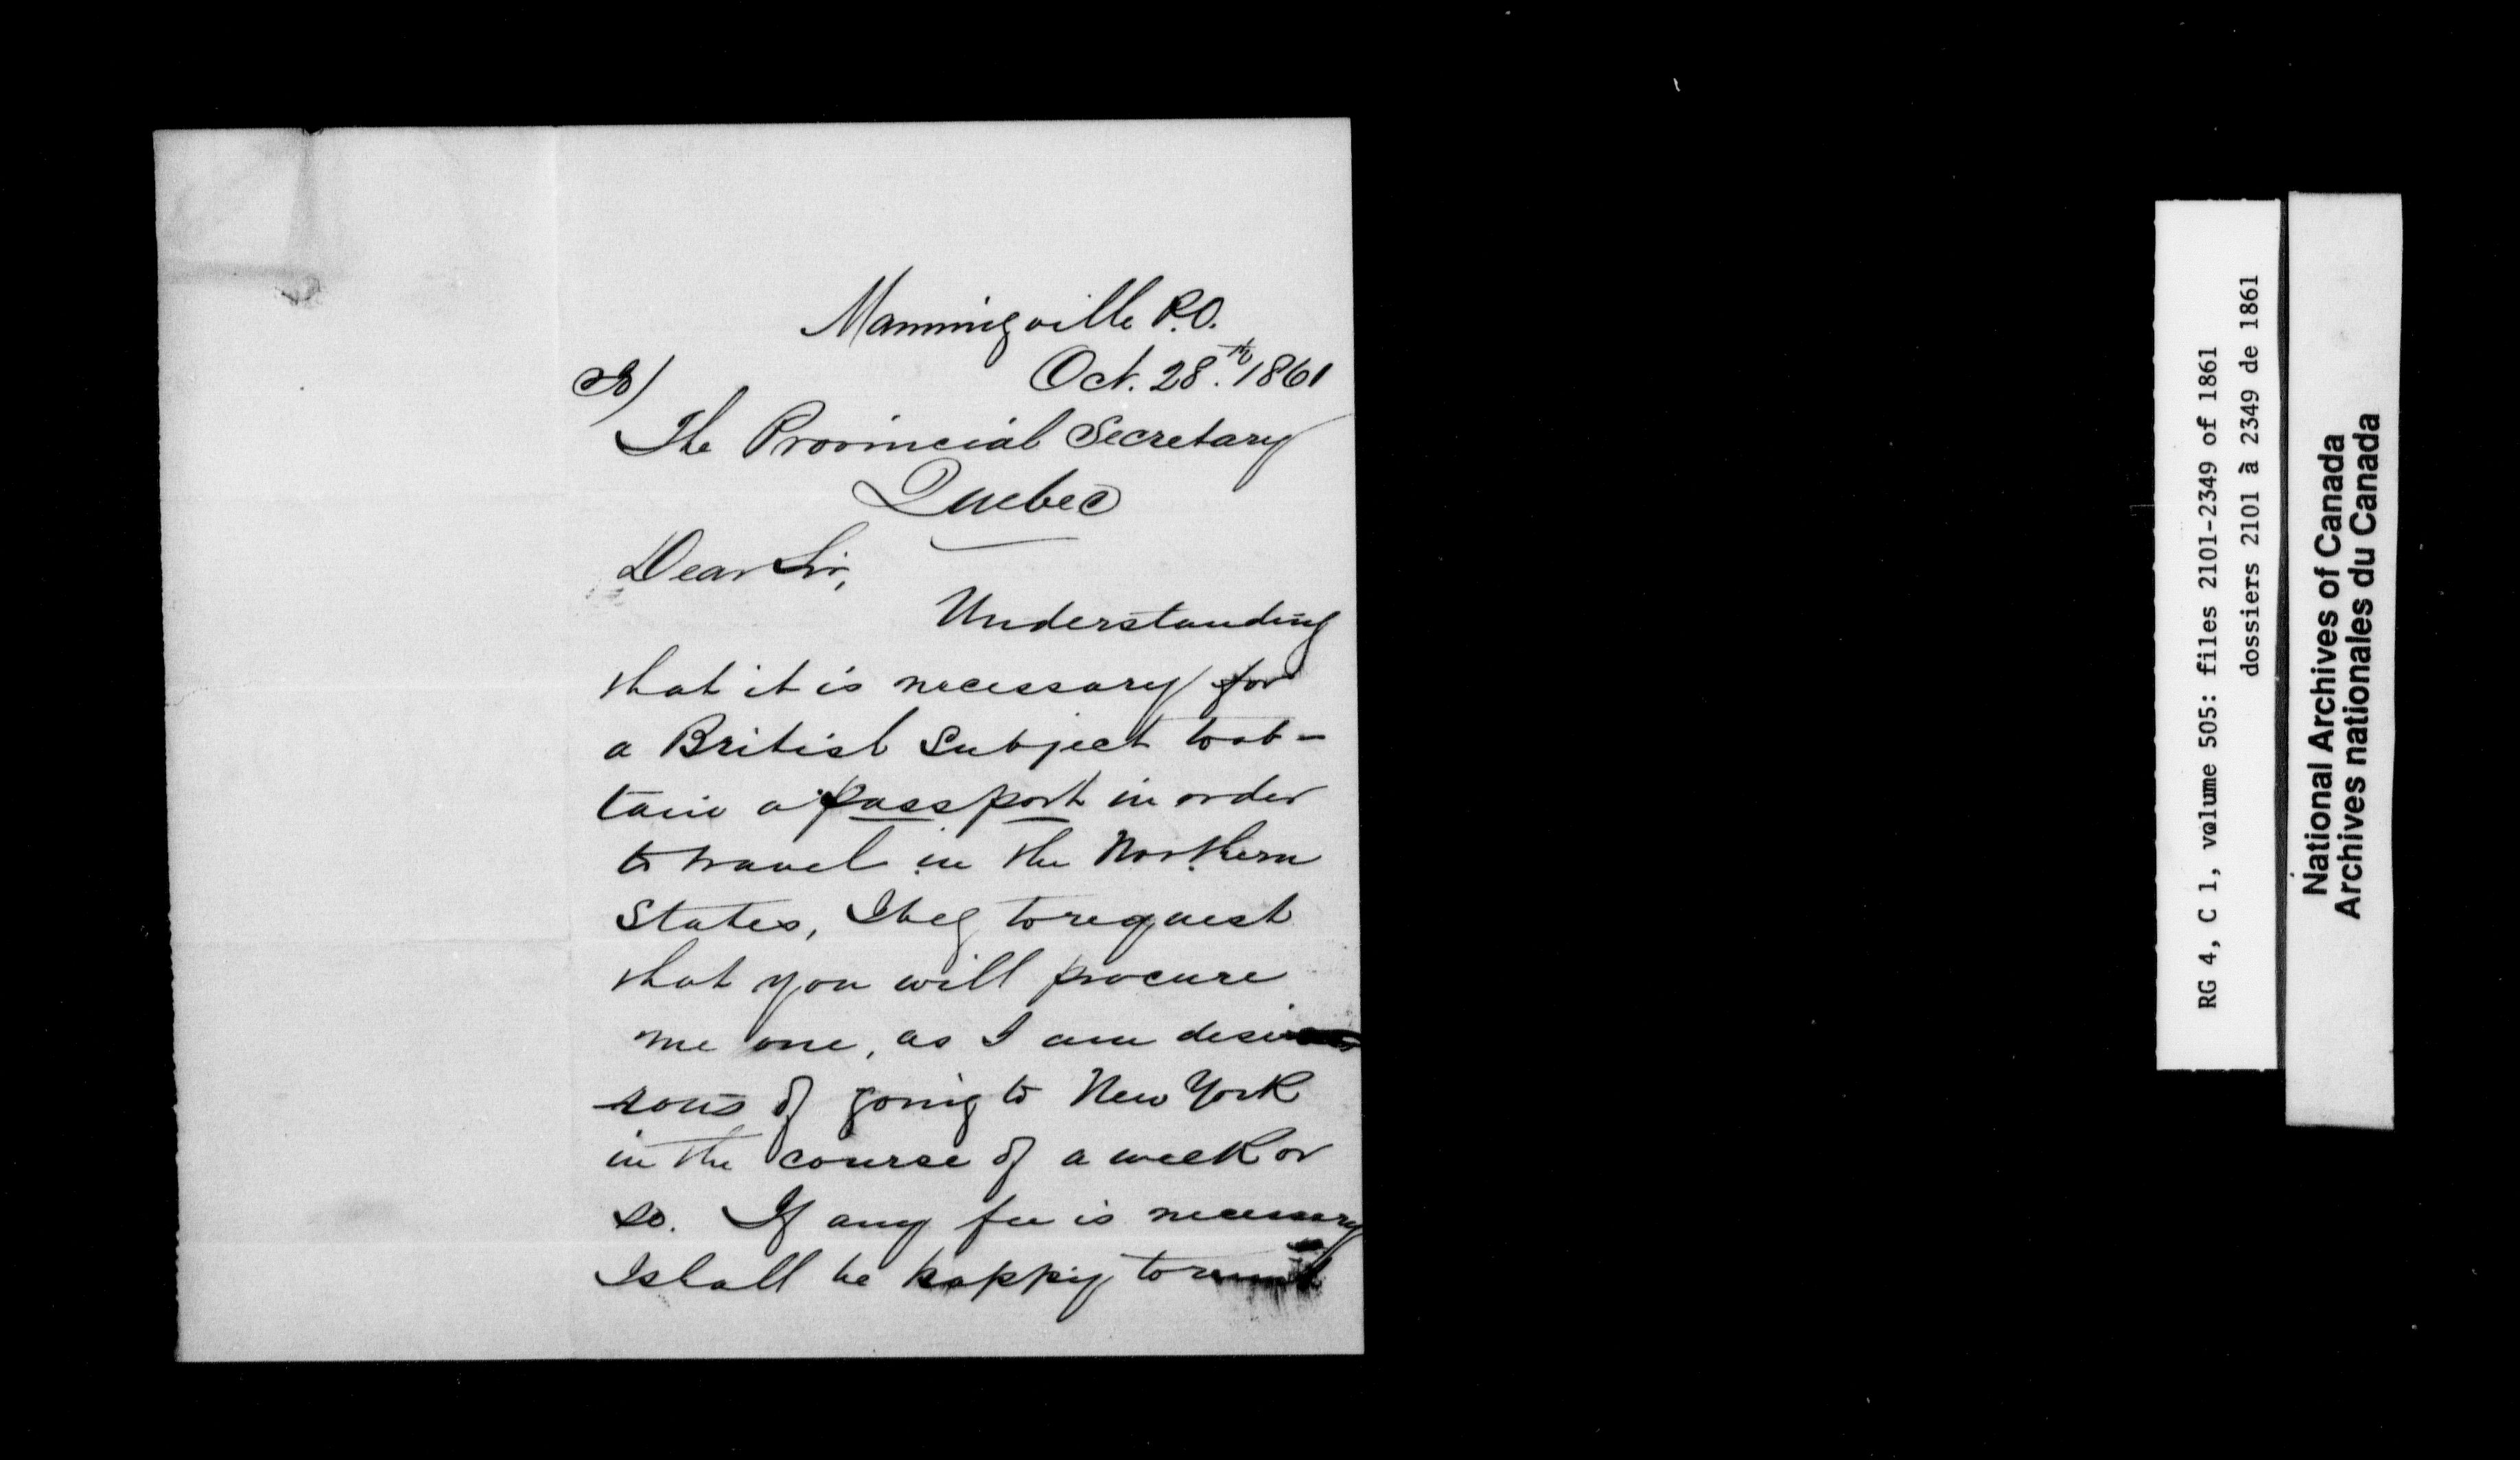 Manningville P.O.
Oct. 28th. 1861
The Provincial Secretary
Quebec
Dear Sir,
Understanding
that it is necessary for
a British Subject to ob-
tain a passport in order
to travel in the Northern
States, I beg to request
that you will procure
me one, as I am desi
rous of going to New York
in the course of a week or
so. If any fee is necessary
I shall be happy to remit
RG 4, C 1, volume 505: files 2101-2349 of 1861
dossiers 2101 à 2349 de 1861
National Archives of Canada
Archives nationales du Canada